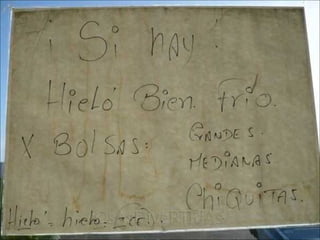 ¡ Si hay !
Hieló Bien frío.
X BOLSAS:
GRANDES.
MEDIANAS
CHIQUITAS.
Hieló = hielo =